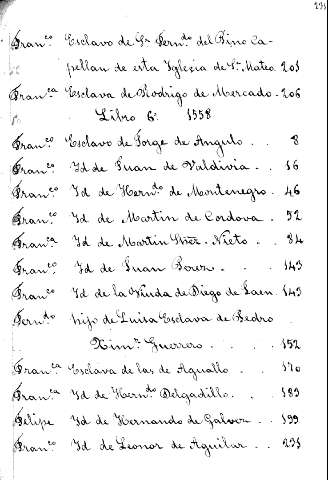 Fran.co Esclavo de Gr. Fern.do del Pino Ca-
pellan de esta Iglesia de S.n Mateo 205
Fran.ca Esclava de Rodrigo de Mercado. 206
Libro 6.º 1558
Fran.co Esclavo de Jorge de Angulo . . 8
Fran.co Id de Juan de Valdivia . . 16
Fran.co Id de Hern.do de Montenegro . 46
Fran.co Id de Martin de Cordova . . 52
Fran.ca Id de Martin Yher. Nieto . . 84
Fran.co Id de Juan Perez . . . 143
Fran.co Id de la Viuda de Diego de Jaen . 145
Fern.do hijo de Luisa Esclava de Pedro
Xim.z Guerrero . . . . . 152
Fran.ca Esclava de las de Aguallo . . 170
Fran.ca Id de Hern.do Delgadillo . . 189
Felipe Id de Hernando de Galvez . . 199
Fran.co Id de Leonor de Aguilar . . 235